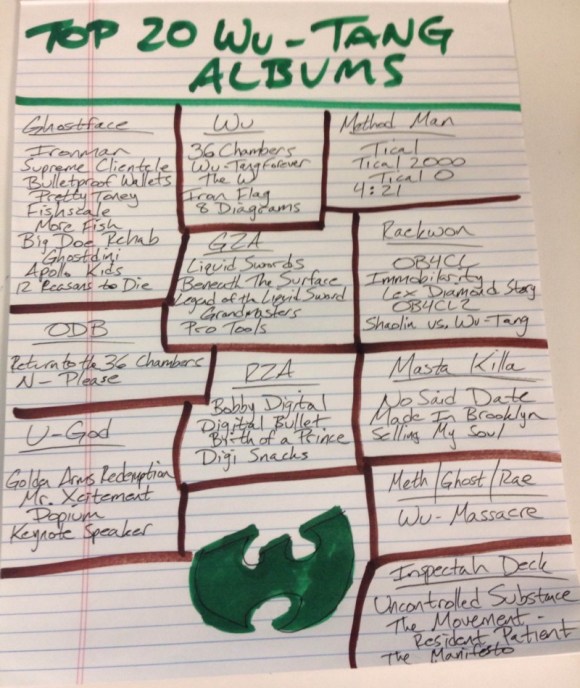 TOP 20 WU-TANG
ALBUMS
Ghostface
Ironman
Supreme Clientele
Bulletproof Wallets
Pretty Toney
Fishscale
More Fish
Big Doe Rehab
Ghostdini
Apollo Kids
12 Reasons to Die
Wu
36 Chambers
Wu-Tang Forever
The W
Iron Flag
8 Diagrams
Method Man
Tical
Tical 2000
Tical 0
4:21
GZA
Liquid Swords
Beneath The Surface
Legend of the Liquid Sword
Grandmasters
Pro Tools
Raekwon
OB4CL
Immobilarity
Lex Diamond Story
OB4CL2
Shaolin vs. Wu-Tang
ODB
Return to the 36 Chambers
N- Please
RZA
Bobby Digital
Digital Bullet
Birth of a Prince
Digi Snacks
Masta Killa
No Said Date
Made In Brooklyn
Selling My Soul
U-God
Golden Arms Redemption
Mr. Xcitement
Dopium
Keynote Speaker
Meth/Ghost/Rae
Wu-Massacre
Inspectah Deck
Uncontrolled Substance
The Movement
Resident Patient
The Manifesto